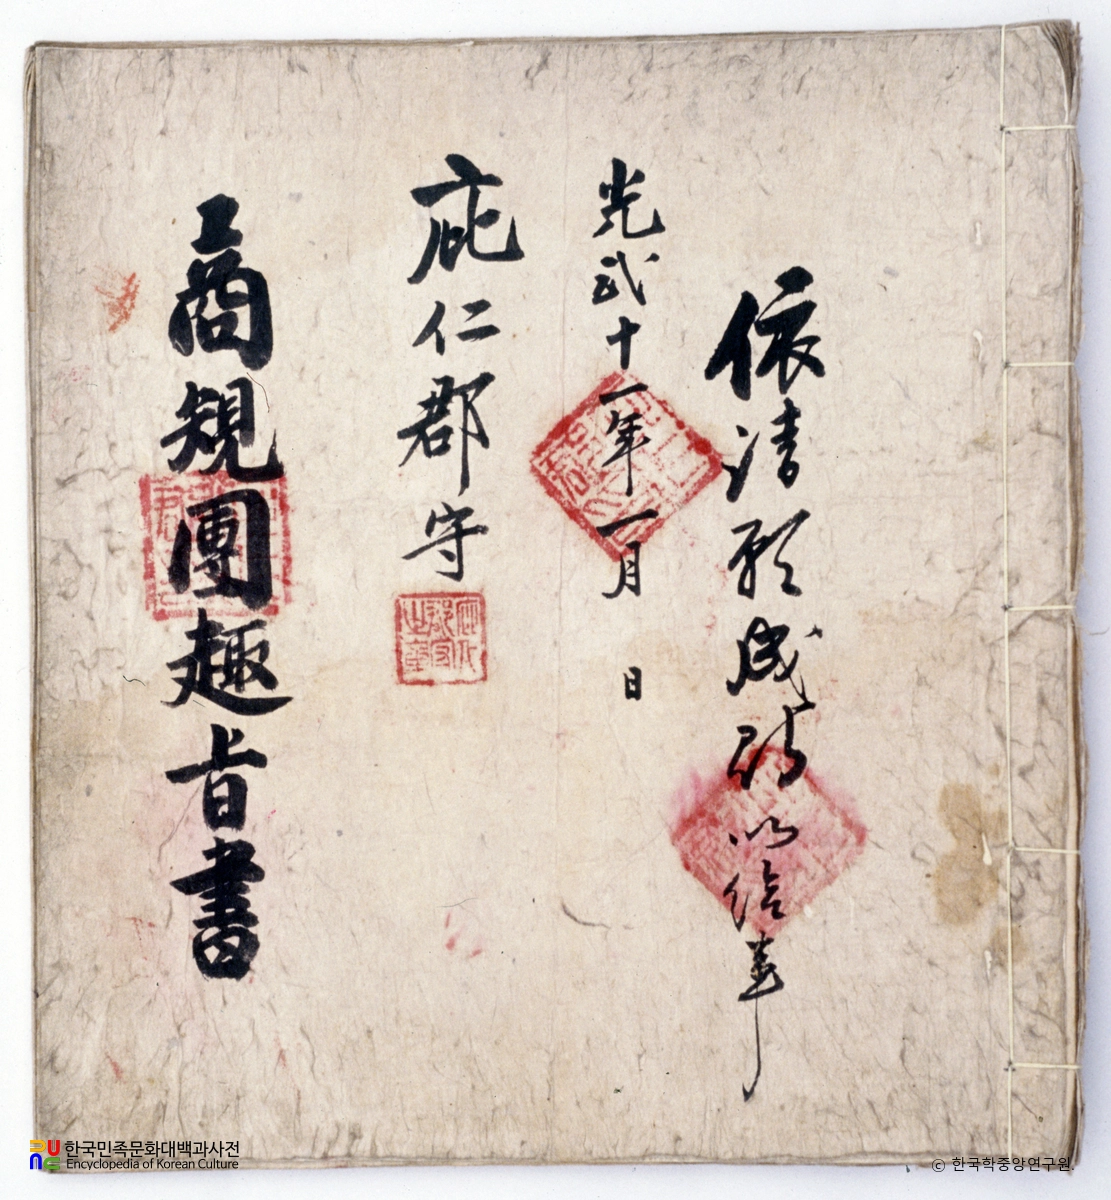 依請願成給以信事
光武十一年一月 日
庇仁郡守
工商規團趣旨書
한국민족문화대백과사전
Encyclopedia of Korean Culture
© 한국학중앙연구원.